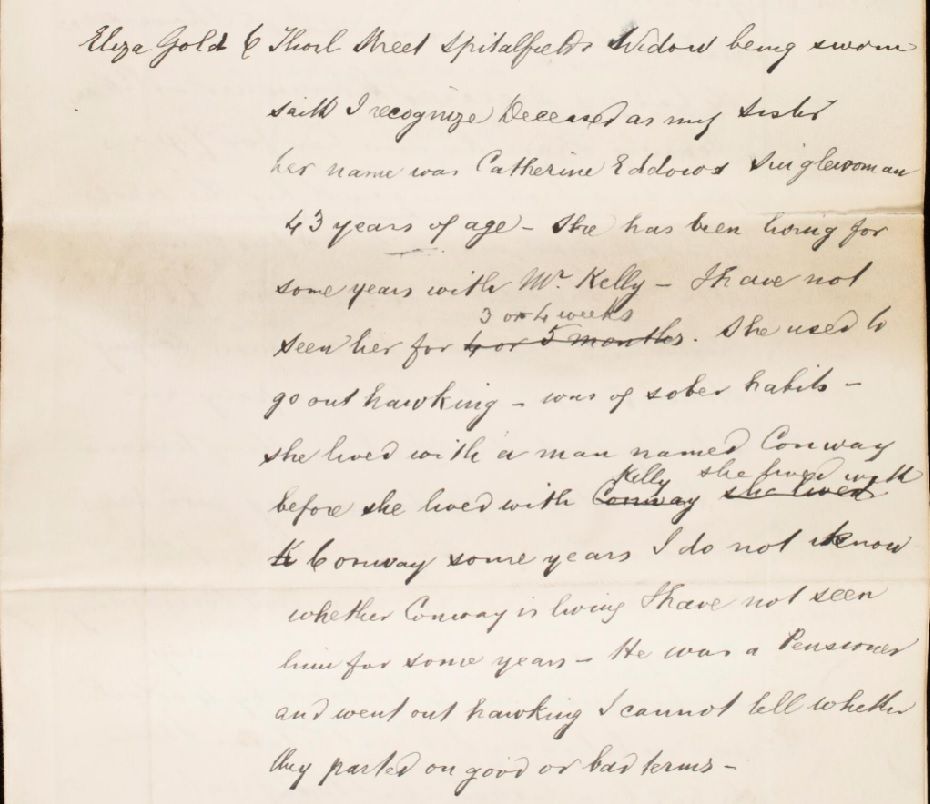 Eliza Gold 6 Thrawl Street Spitalfields Widow being sworn
saith I recognize Deceased as my sister
her name was Catherine Eddows Singlewoman
43 years of age – She has been living for
some years with Mr. Kelly – I have not
3 or 4 weeks
seen her for 4 or 5 months. She used to
go out hawking – was of sober habits –
she lived with a man named Conway
Kelly she lived with
before she lived with Conway she lived
K Conway some years I do not know
whether Conway is living I have not seen
him for some years – He was a Pensioner
and went out hawking I cannot tell whether
they parted on good or bad terms –